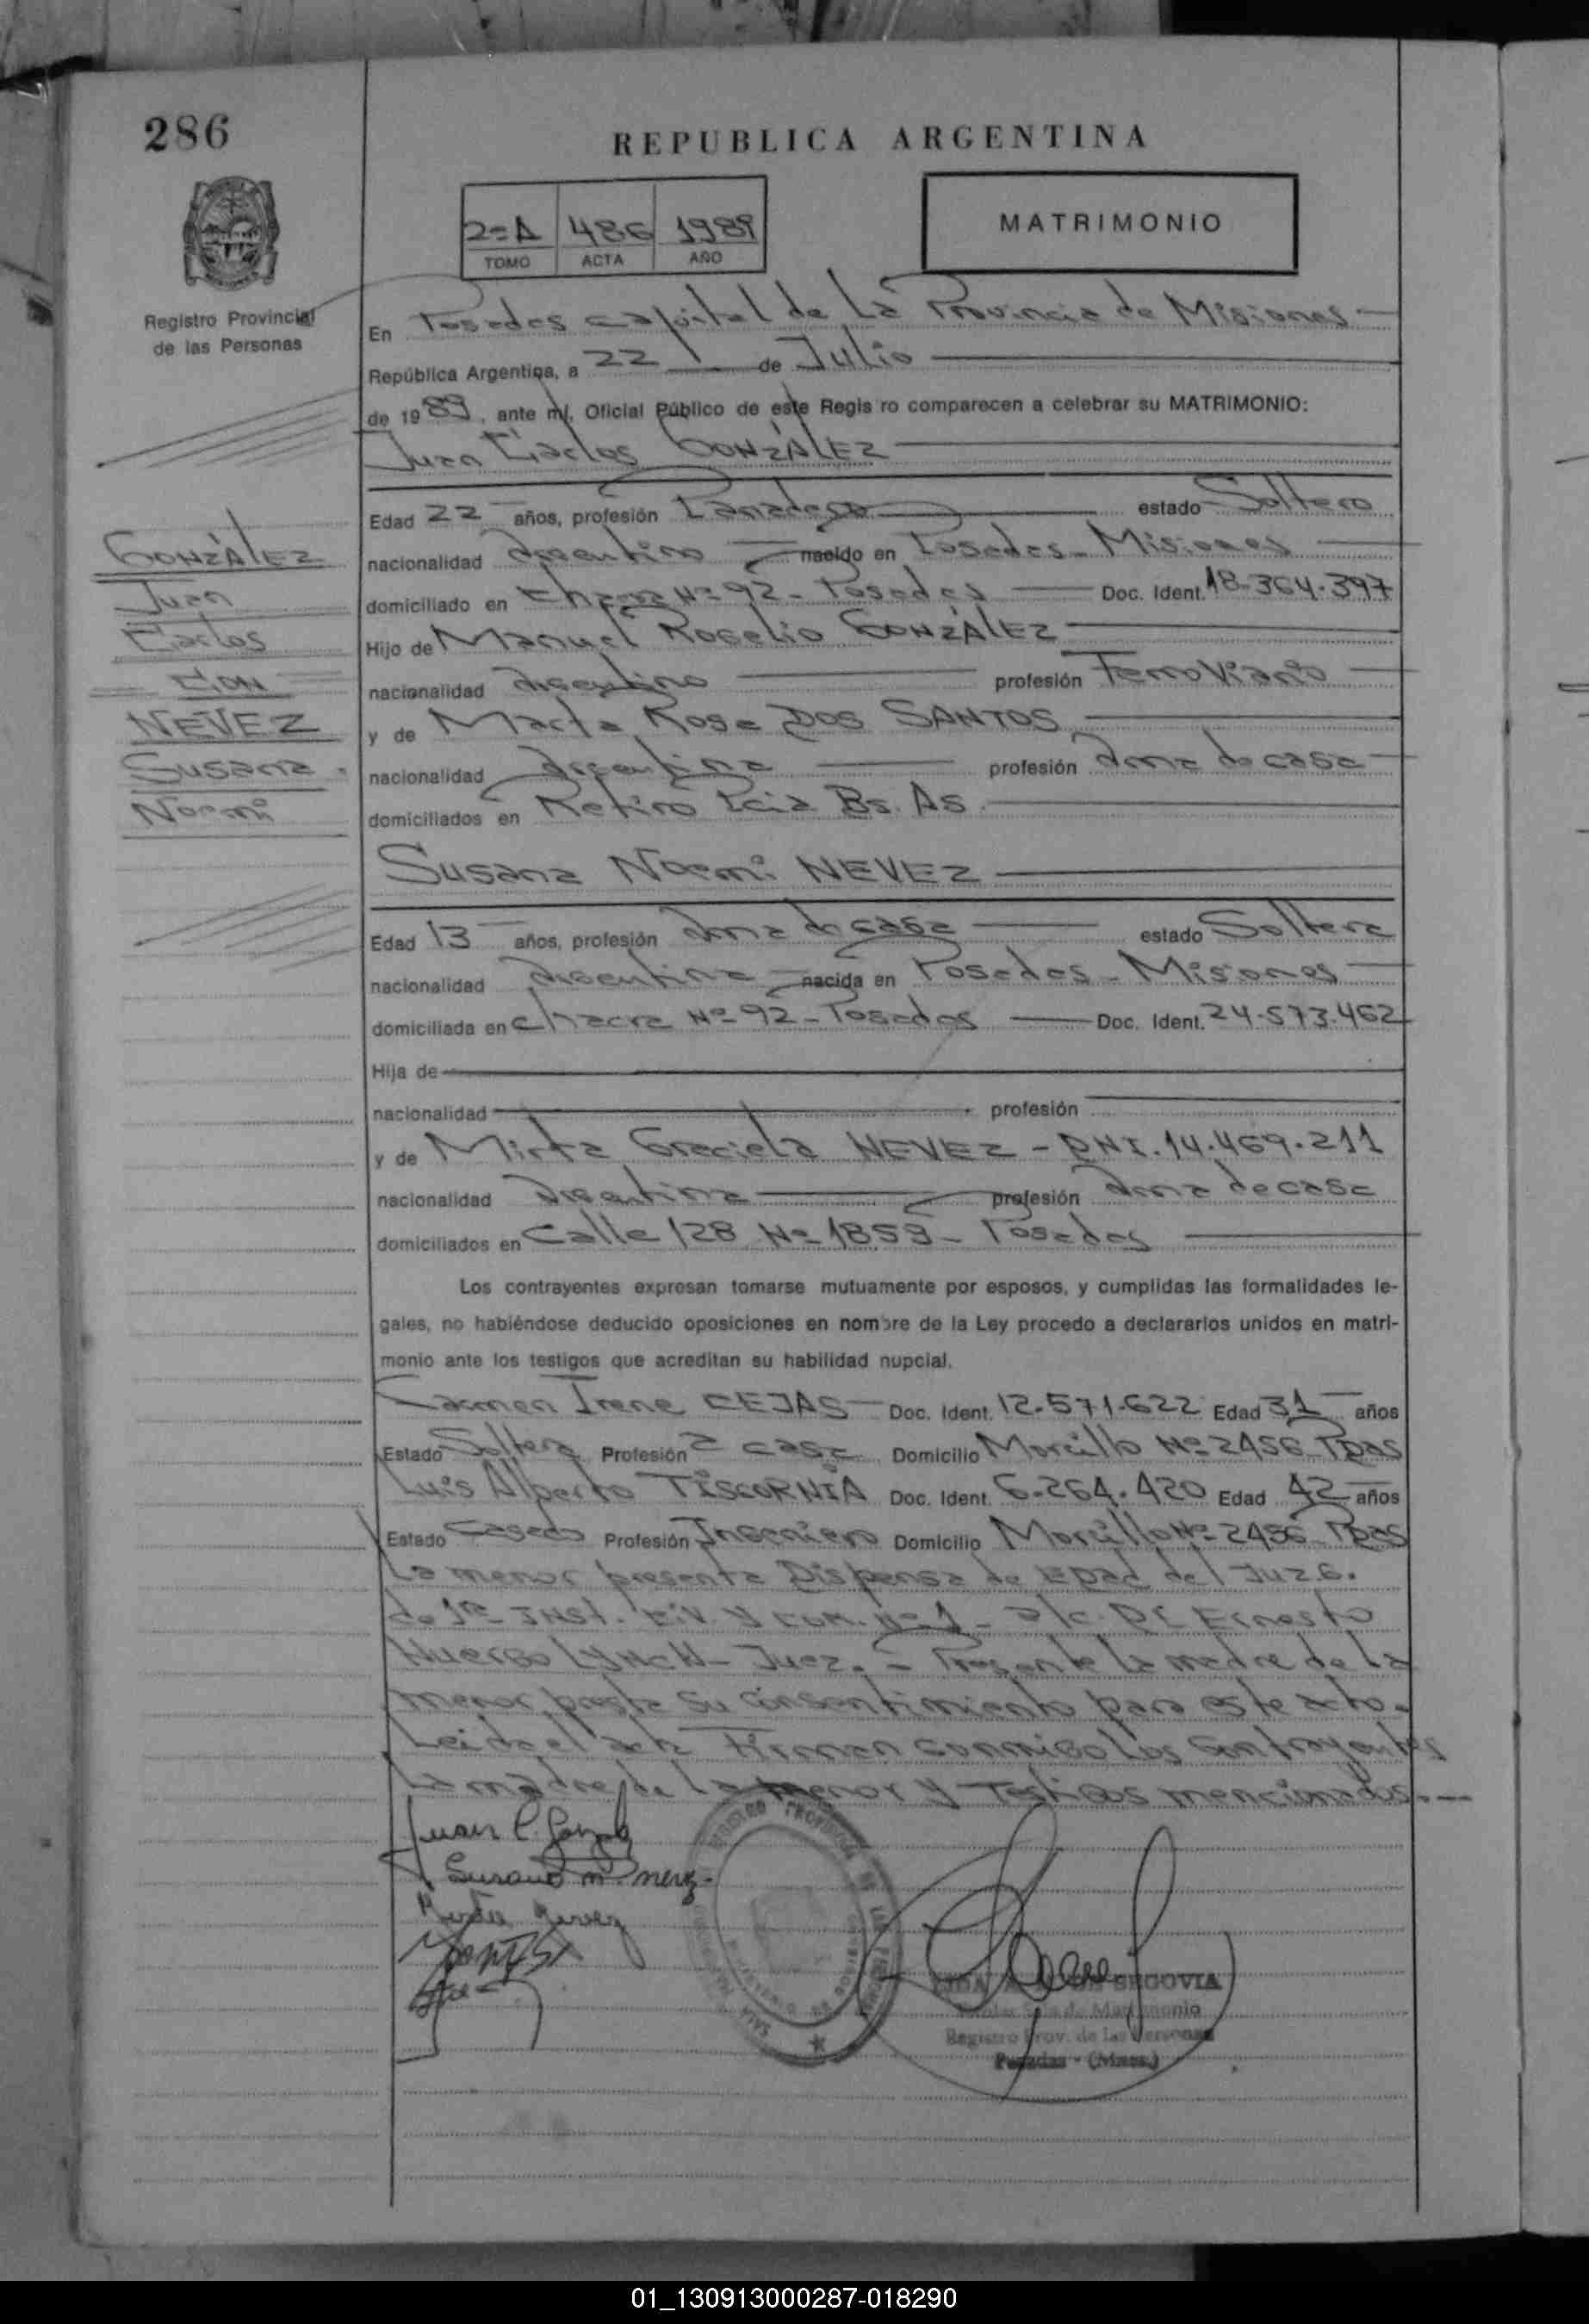 286
REPUBLICA ARGENTINA
2=A 486 1989
TOMO ACTA AÑO
MATRIMONIO
Registro Provincial
de las Personas
En Posadas capital de La Provincia de Misiones
República Argentina, a 22 de Julio
de 1989, ante mí, Oficial Público de este Regis ro comparecen a celebrar su MATRIMONIO:
Juan Carlos GONZÁLEZ
Edad 22 años, profesión Panadero estado Soltero
nacionalidad Argentino nacido en Posadas - Misiones
domiciliado en Chacra Nº 92 - Posadas Doc. Ident. 18.364.397
Hijo de Manuel Rogelio GONZÁLEZ
nacionalidad Argentino profesión Ferroviario
y de Marta Rosa DOS SANTOS
nacionalidad Argentina profesión Ama de casa
domiciliados en Retiro Pcia Bs. As.
GONZÁLEZ
Juan
Carlos
CON
NEVEZ
Susana
Noemi
Susana Noemi NEVEZ
Edad 13 años, profesión Ama de casa estado Soltera
nacionalidad Argentina nacida en Posadas - Misiones
domiciliada en Chacra Nº 92 - Posadas Doc. Ident. 24.573.462
Hija de
nacionalidad profesión
y de Mirta Graciela NEVEZ - DNI. 14.469.211
nacionalidad Argentina profesión Ama de casa
domiciliados en Calle 128 Nº 1859 - Posadas
Los contrayentes expresan tomarse mutuamente por esposos, y cumplidas las formalidades le-
gales, no habiéndose deducido oposiciones en nombre de la Ley procedo a declararlos unidos en matri-
monio ante los testigos que acreditan su habilidad nupcial.
Carmen Irene CEJAS Doc. Ident. 12.571.622 Edad 31 años
Estado Soltera Profesión a casa Domicilio Morcillo Nº 2456 Pdas
Luis Alberto TISCORNIA Doc. Ident. 6.264.420 Edad 42 años
Estado Casado Profesión Ingeniero Domicilio Morcillo Nº 2456 Pdas
La menor presenta Dispensa de Edad del Juzg.
de 1ra INST. CIV. y COM. Nº 1 - a/c. Dr Ernesto
Huergo LYNCH - Juez. - Presente la madre de la
menor presta su consentimiento para este acto.
Leida el acta Firman conmigo Los contrayentes
La madre de la menor y Testigos mencionados.
Juan C. Gonzalez
Susana N. nevez
Mirta Nevez
REGISTRO PROVINCIAL DE LAS PERSONAS
SEGOVIA
Matrimonio
Registro Prov. de las Personas
Posadas - (Mnes.)
01_130913000287-018290